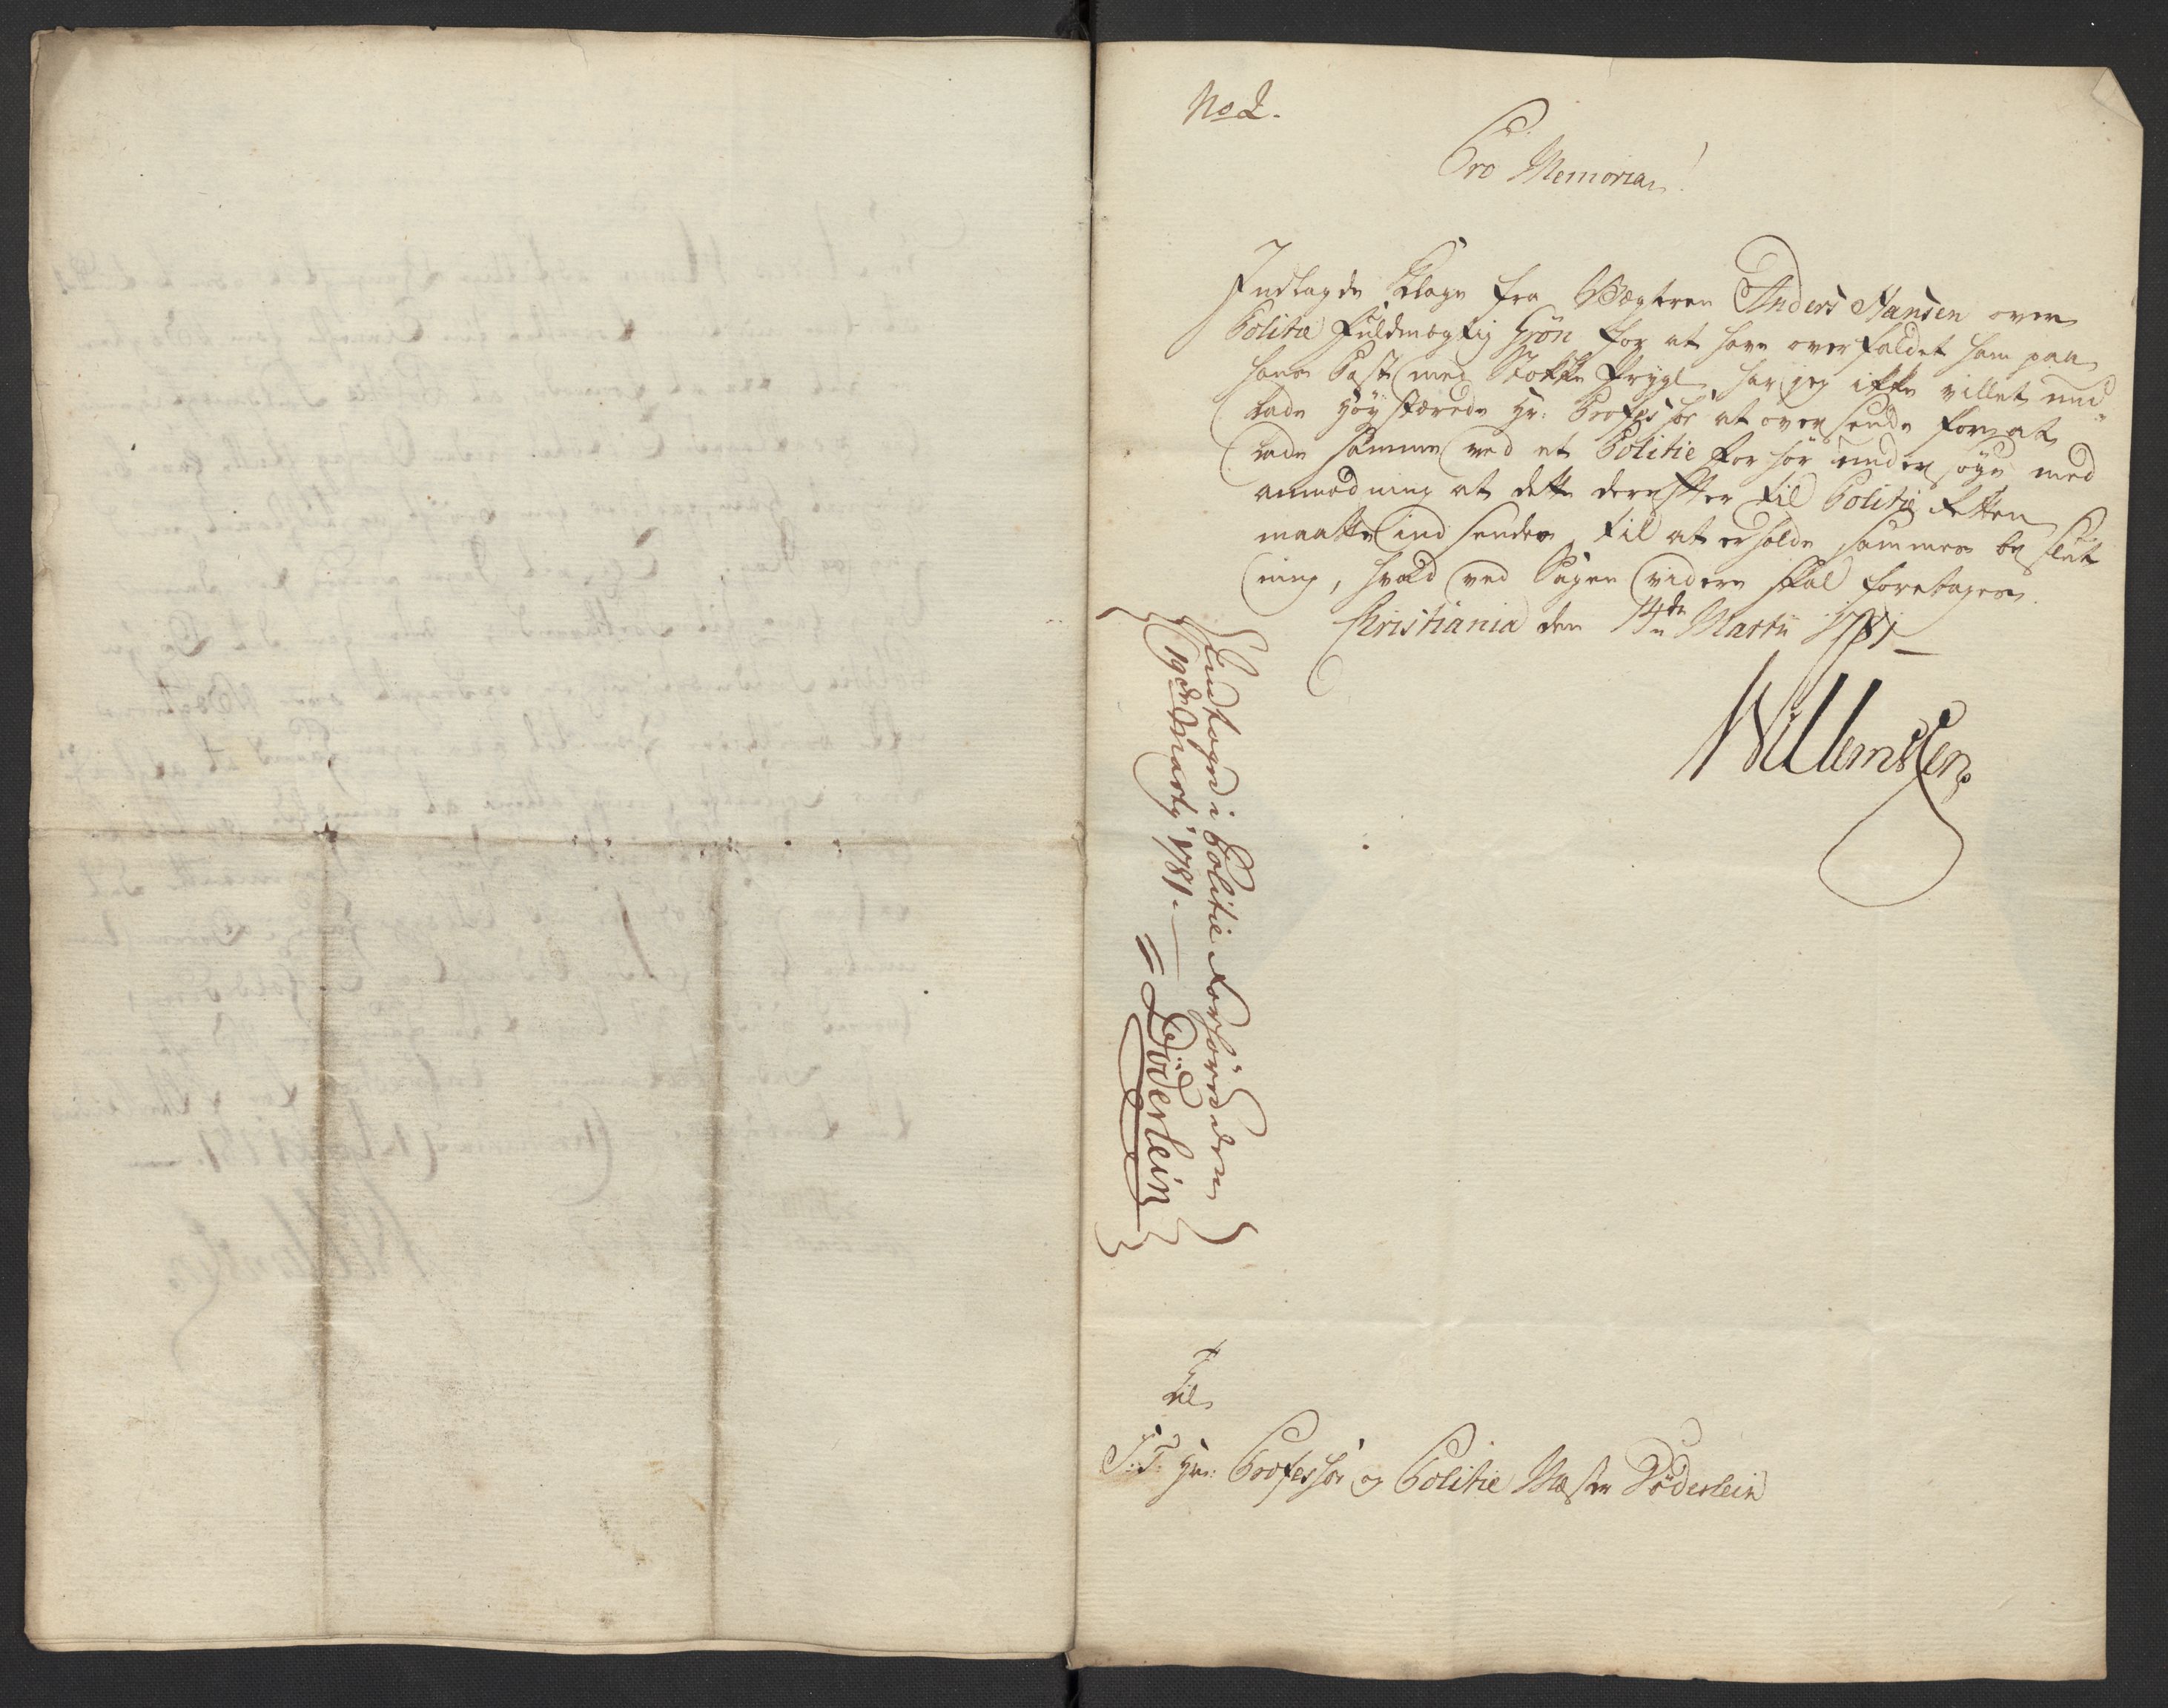 No 2.
Pro Memoria!
Indlagde Klage fra Vægteren Anders Hansen over
Politie Fuldmægtig Grøn for at have overfaldet ham paa
hans Post med Stokke Prygl, har jeg ikke villet und-
lade Høystærede Hr: Professor at oversende for at
lade samme ved et Politie Forhør undersøge med
anmodning at dette derefter til Politie Retten
maatte indsendes til at erholde sammes beslut
ning, hvad ved Sagen videre skal foretages.
Christiania den 14de Martii 1781
Willemsen
Fremlagd i Politie Forhøret den
19de Martj 1781.
Döderlein
Til
S: T: Hr: Professor og Politie Mester Döderlein